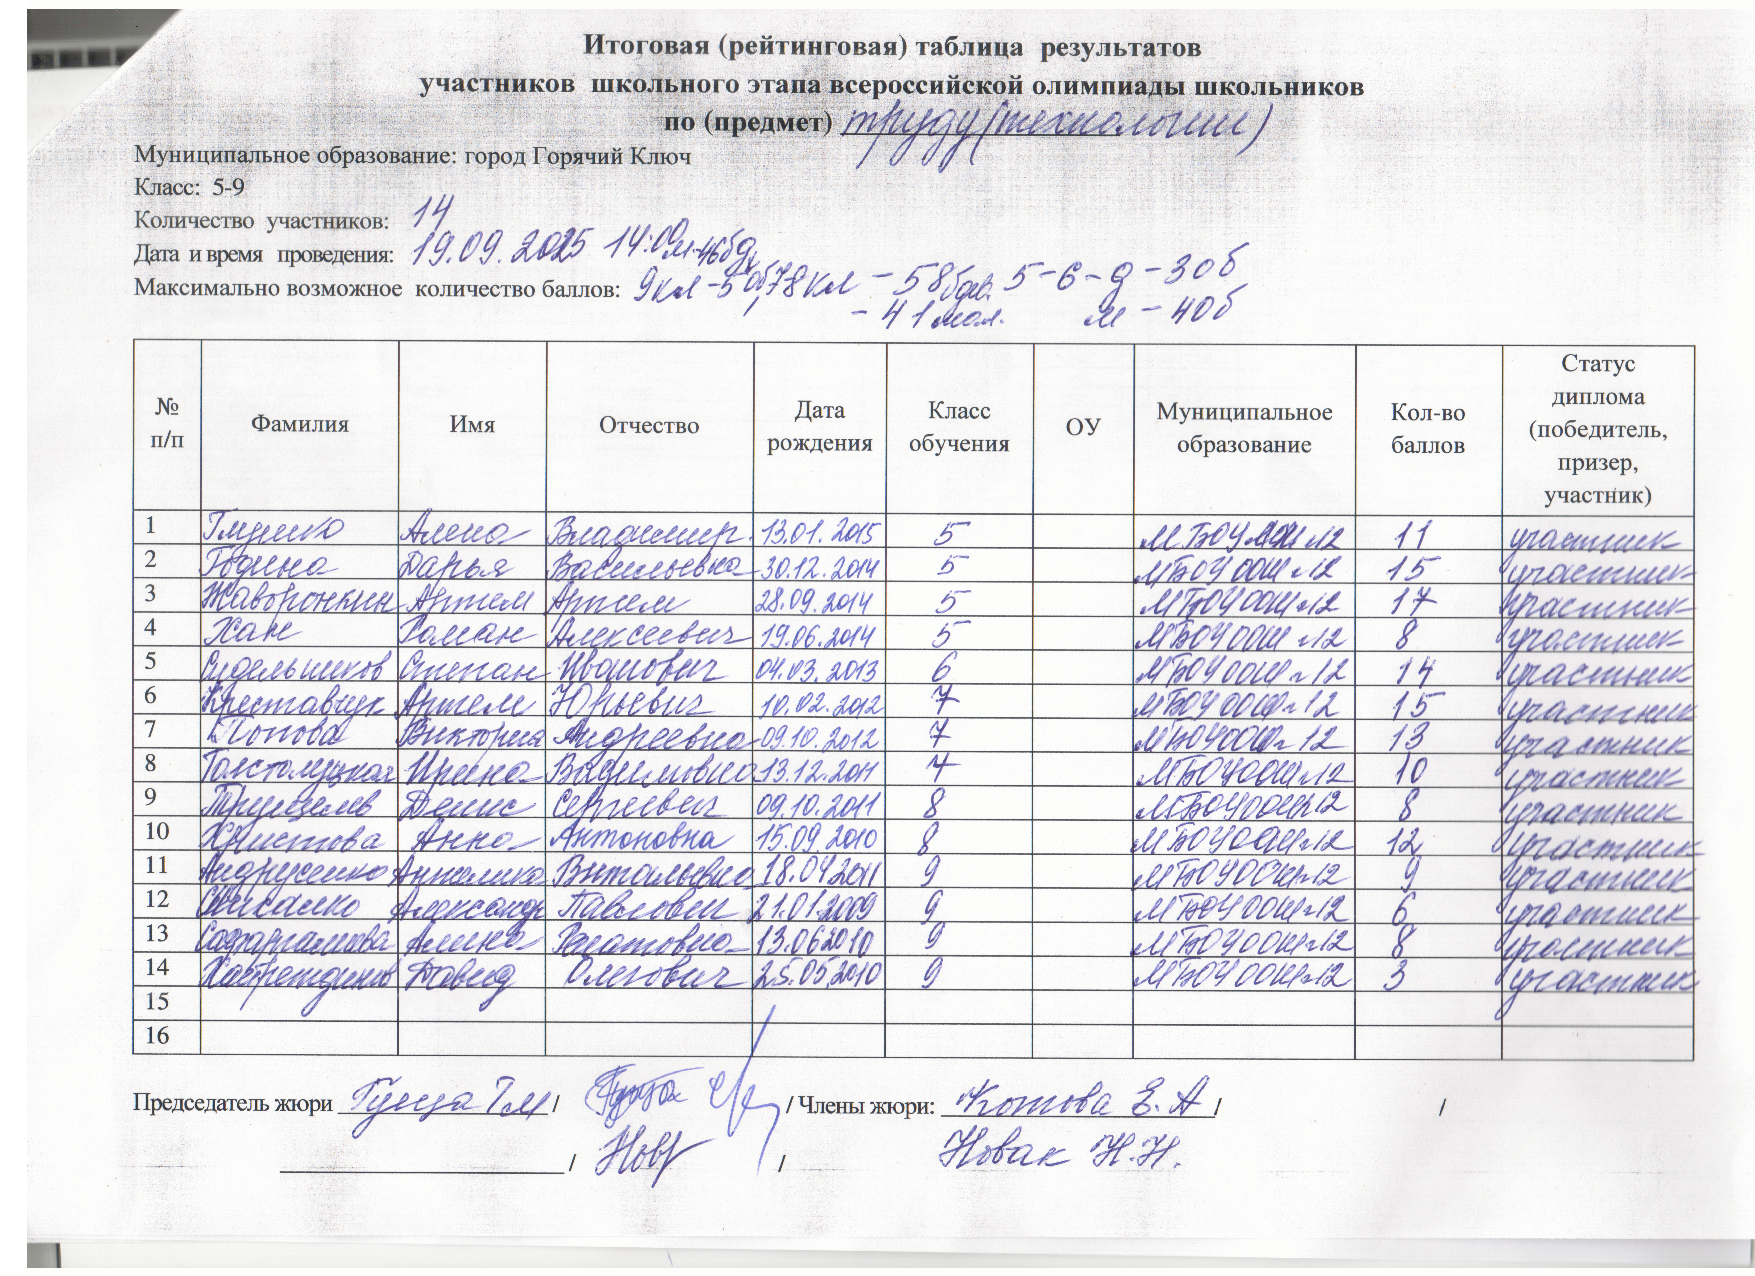 Итоговая (рейтинговая) таблица результатов
участников школьного этапа всероссийской олимпиады школьников
по (предмет) труду (технологии)
Муниципальное образование: город Горячий Ключ
Класс: 5-9
Количество участников: 14
Дата и время проведения: 19.09.2025 14:00
Максимально возможное количество баллов: 9кл - 5 78 кл - 58 б дев. 5-6-д-30б
- 41 мал. м - 40б
№ п/п Фамилия Имя Отчество Дата рождения Класс обучения ОУ Муниципальное образование Кол-во баллов Статус диплома (победитель, призер, участник)
1 Алена Владимир. 13.01.2015 5 МБОУ ООШ №12 11 участник
2 Година Дарья Васильевна 30.12.2014 5 МБОУ ООШ №12 15 участник
3 Жаворонкин Артем Артем 28.09.2014 5 МБОУ ООШ №12 17 участник
4 Хан Роман Алексеевич 19.06.2014 5 МБОУ ООШ №12 8 участник
5 Сидельников Степан Иванович 04.03.2013 6 МБОУ ООШ №12 14 участник
6 Артем Юрьевич 10.02.2012 7 МБОУ ООШ №12 15 участник
7 Попова Виктория Андреевна 09.10.2012 7 МБОУ ООШ №12 13 участник
8 Толстолуцкая Ирина Вадимовна 13.12.2011 7 МБОУ ООШ №12 10 участник
9 Денис Сергеевич 09.10.2011 8 МБОУ ООШ №12 8 участник
10 Христова Анна Антоновна 15.09.2010 8 МБОУ ООШ №12 12 участник
11 Андрусенко Анжелика Витальевна 18.04.2011 9 МБОУ ООШ №12 9 участник
12 Александр Павлович 21.01.2009 9 МБОУ ООШ №12 6 участник
13 Алина 13.06.2010 9 МБОУ ООШ №12 8 участник
14 Давид Олегович 25.05.2010 9 МБОУ ООШ №12 3 участник
15
16
Председатель жюри Гуща Г.М / / Члены жюри: Котова Е.А / /
/ / Новак Н.Н.